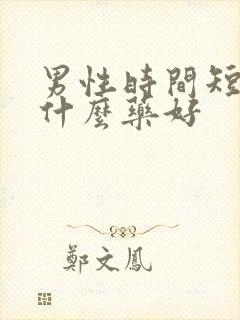 男性時間短
什麼藥好
鄭文鳳